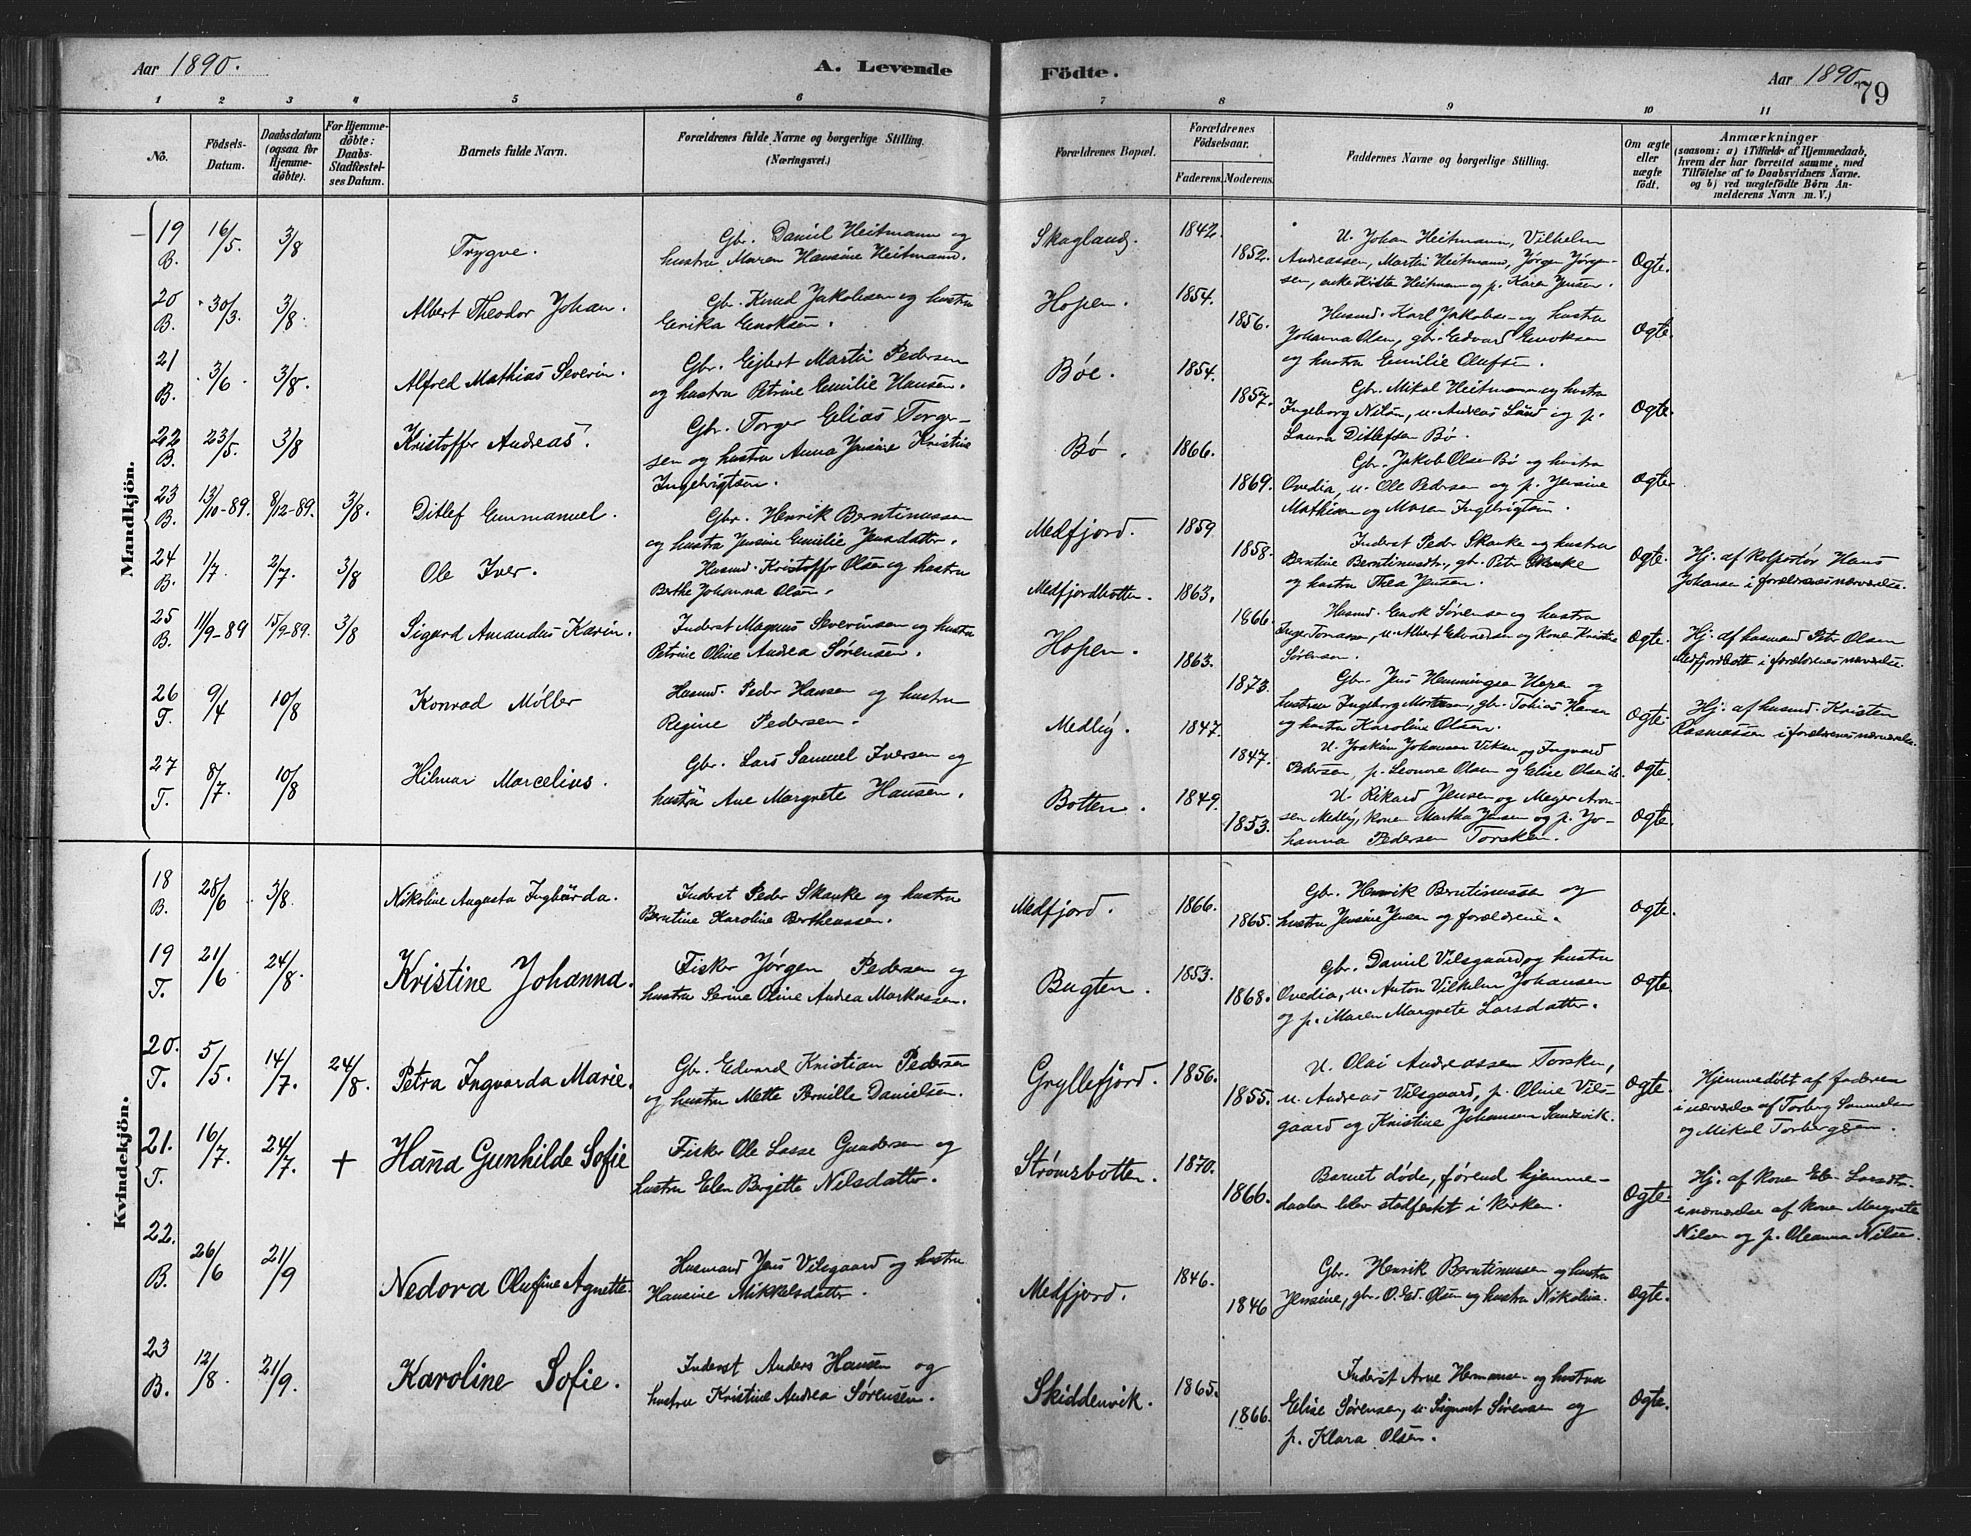 Aar 1890.
A. Levende
Födte.
Aar 1890
79
1 2 3 4 5 6 7 8 9 10 11
No.
Födsels-Datum.
Daabsdatum (ogsaa for Hjemmedöbte).
For Hjemmedöbte: Daabs-Stadfæstelses Datum.
Barnets fulde Navn.
Forældrenes fulde Navne og borgerlige Stilling. (Næringsvei.)
Forældrenes Bopæl.
Forældrenes Födselsaar.
Faderens. Moderens.
Faddernes Navne og borgerlige Stilling.
Om ægte eller uægte födt.
Anmærkninger
(saasom: a) i Tilfælde af Hjemmedaab, hvem der har forrettet samme, med Tilföielse af to Daabsvidners Navne. og b) ved uægtefödte Börn Anmelderens Navn m. V.)
Mandkjön.
19 B. 16/5. 3/8 Trygve. Gbr. Daniel Heitmann og
hustru Maren Hansine Heitmann. Skagland. 1842. 1852. U. Johan Heitmann, Vilhelm
Andreassen, Martin Heitmann, Jørgen Jørgen-
sen, enke Kirsten Heitmann og p. Karen Jensen. Ægte.
20 B. 30/3. 3/8. Albert Theodor Johan. Gbr. Knud Jakobsen og hustru
Erika Enoksen. Hopen. 1854. 1856. Husmd. Karl Jakobsen og hustru
Johanna Olsen, gbr. Edvard Enoksen
og hustru Emilie Olufsen. Ægte.
21 B. 3/6. 3/8. Alfred Mathias Severin. Gbr. Ejlert Martin Pedersen
og hustru Petrine Emilie Hansen. Bøe. 1854. 1857. Gbr. Mikal Heitmann og hustru
Ingeborg Nilsen, u. Andreas Lund og p.
Laura Ditlefsen Bø. Ægte.
22 B. 23/5. 3/8 Kristoffer Andreas. Gbr. Torger Elias Torger-
sen og hustru Anna Jensine Kristine
Ingebrigtsen. Bø. 1866. 1869. Gbr. Jakob Olsen Bø og hustru
Ovedia, u. Ole Pedersen og p. Jensine
Mathisen og Maren Ingebrigtsen. Ægte.
23 B. 13/10-89. 8/12-89. 3/8. Ditlef Emmanuel. Gbr. Henrik Berntinussen
og hustru Jensine Emilie Jensdatter. Medfjord. 1859. 1858. Inderst Peder Skanke og hustru
Berntine Berntinusdtr., gbr. Peter Skanke
og hustru Thea Jensen. Ægte. Hj. af kolportør Hans
Johansen i forældrenes nærværelse.
24 B. 1/7. 2/7. 3/8 Ole Iver. Husmd. Kristoffer Olsen og hustru
Berthe Johanna Olsen. Medfjordbotten. 1863. 1866. Husmd. Enok Sørensen og hustru
Inger Tomassen, u. Albert Edvardsen og kone Kristine
Sørensen. Ægte. Hj. af husmand Petr. Olsen
Medfjordbotten i forældrenes nærværelse.
25 B. 11/9-89 15/9-89. 3/8 Sigurd Amandus Karin. Inderst Magnus Severinsen og hustru
Petrine Oline Andrea Sørensen. Hopen. 1863. 1873. Gbr. Jens Henningsen Hopen og
hustru Ingeborg Mortensen, gbr. Tobias Hansen
og hustru Karoline Olsen. Ægte. Hj. af husmd. Kristen
Rasmussen i forældrenes nærværelse.
26 T. 9/4 10/8 Konrad Möller Husmd. Peder Hansen og hustru
Regine Pedersen. Medby. 1847. 1847. U. Joakim Johansen Viken og Ingvard
Pedersen, p. Leonore Olsen og Elise Olsen ib. Ægte.
27 T. 8/7. 10/8 Hilmar Marcelius. Gbr. Lars Samuel Iversen og
hustru Ane Margrete Hansen. Botten. 1849. 1853. U. Rikard Jensen og Meyer Aron-
sen Medby, kone Martha Jensen og p. Jo-
hanna Pedersen Torsken. Ægte.
Kvindekjön.
18 B. 28/6 3/8. Nikoline Augusta Ingbärda. Inderst Peder Skanke og hustru
Berntine Karoline Bertheussen. Medfjord. 1866. 1865. Gbr. Henrik Berntinussen og
hustru Jensine Jensen og forældrene. Ægte.
19 T. 21/6 24/8. Kristine Johanna. Fisker Jørgen Pedersen og
hustru Serine Oline Andrea Markussen. Bugten. 1853. 1868. Gbr. Daniel Vilsgaard og hustru
Ovedia, u. Anton Vilhelm Johansen
og p. Maren Margrete Larsdatter. Ægte.
20. T. 5/5. 14/7. 24/8. Petra Ingvarda Marie. Gbr. Edvard Kristian Pedersen
og hustru Mette Pernille Danielsen. Gryllefjord. 1856. 1855. U. Olai Andreassen Torsken,
u. Andreas Vilsgaard, p. Oline Vils-
gaard og Kristine Johansen Sandsvik. Ægte. Hjemmedøbt af faderen
i nærværelse af Torberg Samuelsen
og Mikal Torbergsen.
21. T. 16/7. 24/7. + Hanna Gunhilde Sofie Fisker Ole Lasse Gundersen og
hustru Elen Bergitte Nilsdatter. Strømsbotten. 1870. 1866. Barnet døde, førend hjemme-
daaben blev stadfæstet i kirken. Ægte. Hj. af kone Elen Larsdtr.
i nærværelse af kone Margrete
Nilsen og p. Oleanna Nilsen.
22. B. 26/6 21/9 Nedora Olufine Agnette. Husmand Jens Vilsgaard og hustru
Hansine Mikkelsdatter. Medfjord. 1846. 1846 Gbr. Henrik Berntinussen og hustru
Jensine, gbr. O. Ed. Olsen og hustru Nikolina. Ægte.
23 B. 12/8. 21/9. Karoline Sofie. Inderst Anders Hansen og
hustru Kristine Andrea Sørensen. Skiddenvik. 1865. 1866. Inderst Arne Hermansen og hustru
Elise Sørensen, u. Signart Sørensen og
p. Klara Olsen. Ægte.